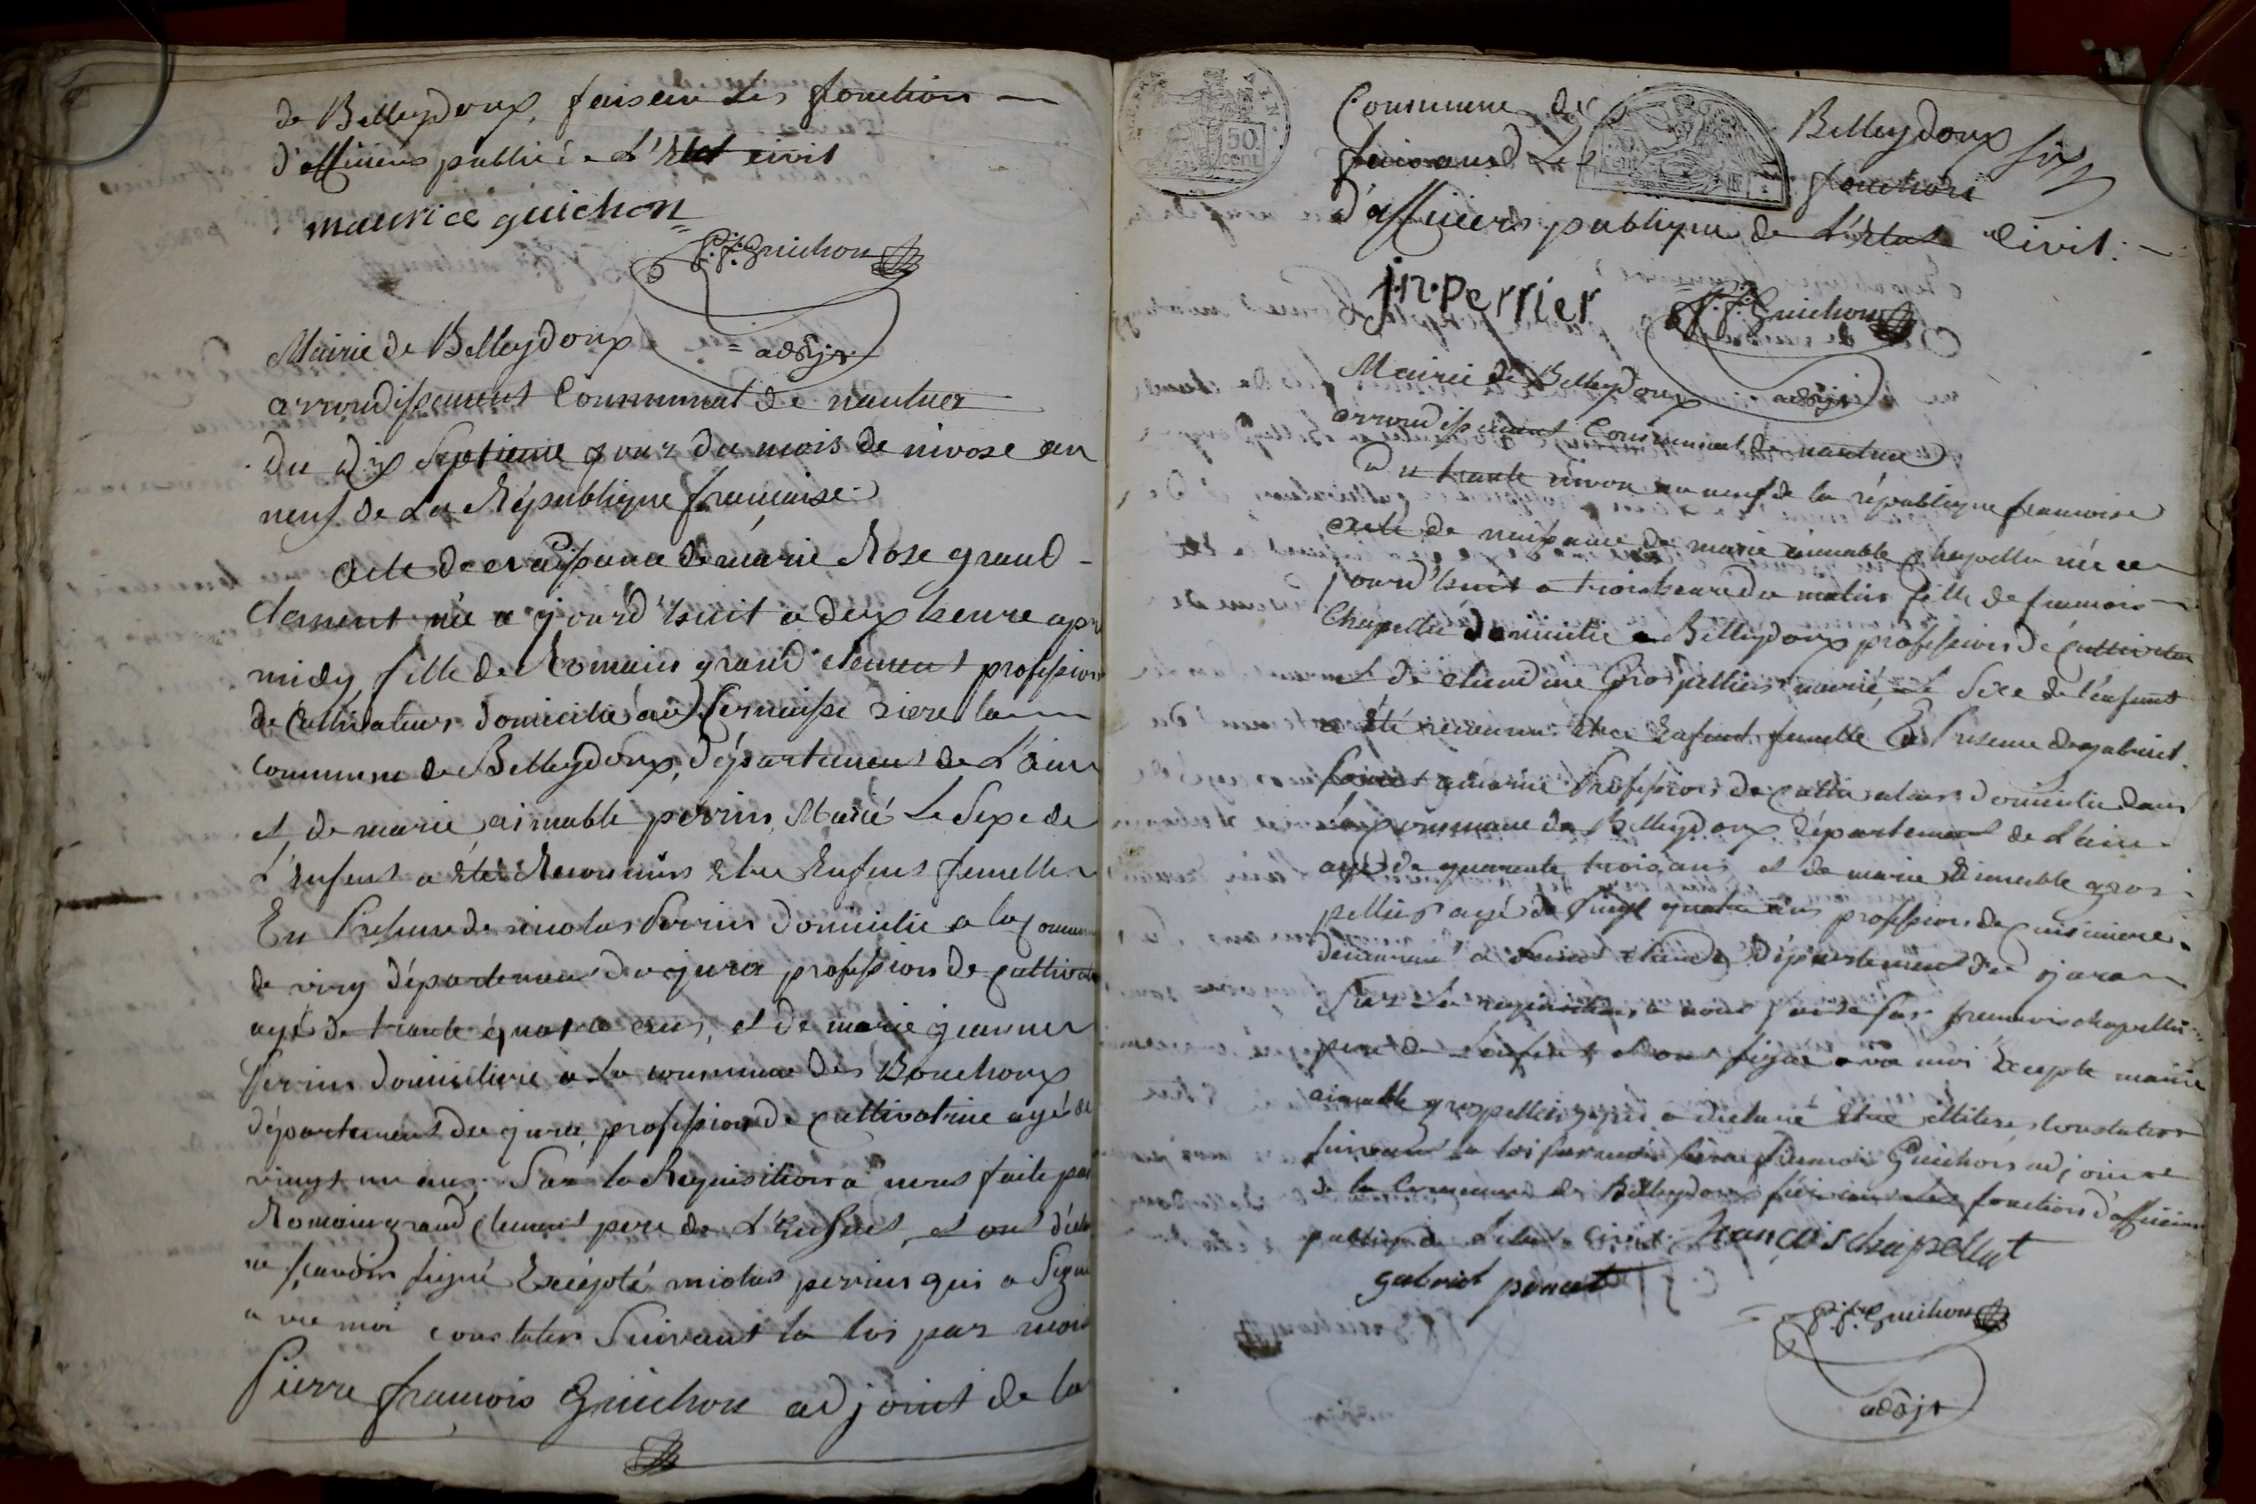 de Belleydoux, faisan les fonction
d'officiers public de L'Etat civil
maurice guichon
P. f. Guichon
adojt
Mairie de Belleydoux
arrondissement Communal de nantua
du dix Septieme jour du mois de nivose an
neuf de La République françaisse
acte de naissance de marie Rose grand
Clement née a jourd'huit a deux heure apr
midy fille de Romain grand clement profession
de Cultivateur domicilié au
commune de Belleydoux, département de L'ain
et de marie aimable perrin, Marié Le Sexe de
L'Enfent a été Reconnus Etre Enfent femelle
En Presence de nicolas Perrin domicilié a la Commune
de viry département du jura profession de cultivate
agé de trante quatre ans, et de marie jeanne
Perrin domiciliée a La commune des Bouchoux
département du jura profession de cultivatrice agé de
vingt un ans, Sur la Requisition a nous faite par
Romain grand Clement pere de L'Enfant, et ont décla
ne scavoir signé Excepté nicolas perrin qui a Signé
a vec moi constater Suivant la loi par moi
Pierre francois Guichon adjoint de la
50 cent
Commune de Belleydoux six
faisand Les fonction
d'officiers publique de L'Etat civil
j.n. perrier
P. f. Guichon
adojt
Mairie de Belleydoux
arrondissement Communal de nantua
Du trante nivose an neuf de la république francoise
acte de naissance de marie aimable chapellu née ce
jourd'huit a trois heure du matin fille de francois
Chapellu domicilié a Belleydoux profession de cultivateur
et de claudine Grospellier marié, Le Sexe de l'enfant
a été reconnu Etre Enfent femelle En Presence de gabriel
Profession de cultivateur domicilié dans
la commune de Belleydoux département de L'ain
agé de quarante trois ans et de marie aimable gros
pellier agé de vingt quatre ans profession de cuisiniere
demeurant a Saint Claude département du jura
Sur La requisition a nous faite par francois chapellu
pere de L'enfent et ont signé a vec moi Excepte marie
aimable grospellier a declaré Etre constater
suivant la loi par moi Pierre francois Guichon adjoint
de la Commune de Belleydoux faisan les fonction d'officier
public de L'etat Civil françois chapellut
gabriel poncet
P. f. Guichon
adojt